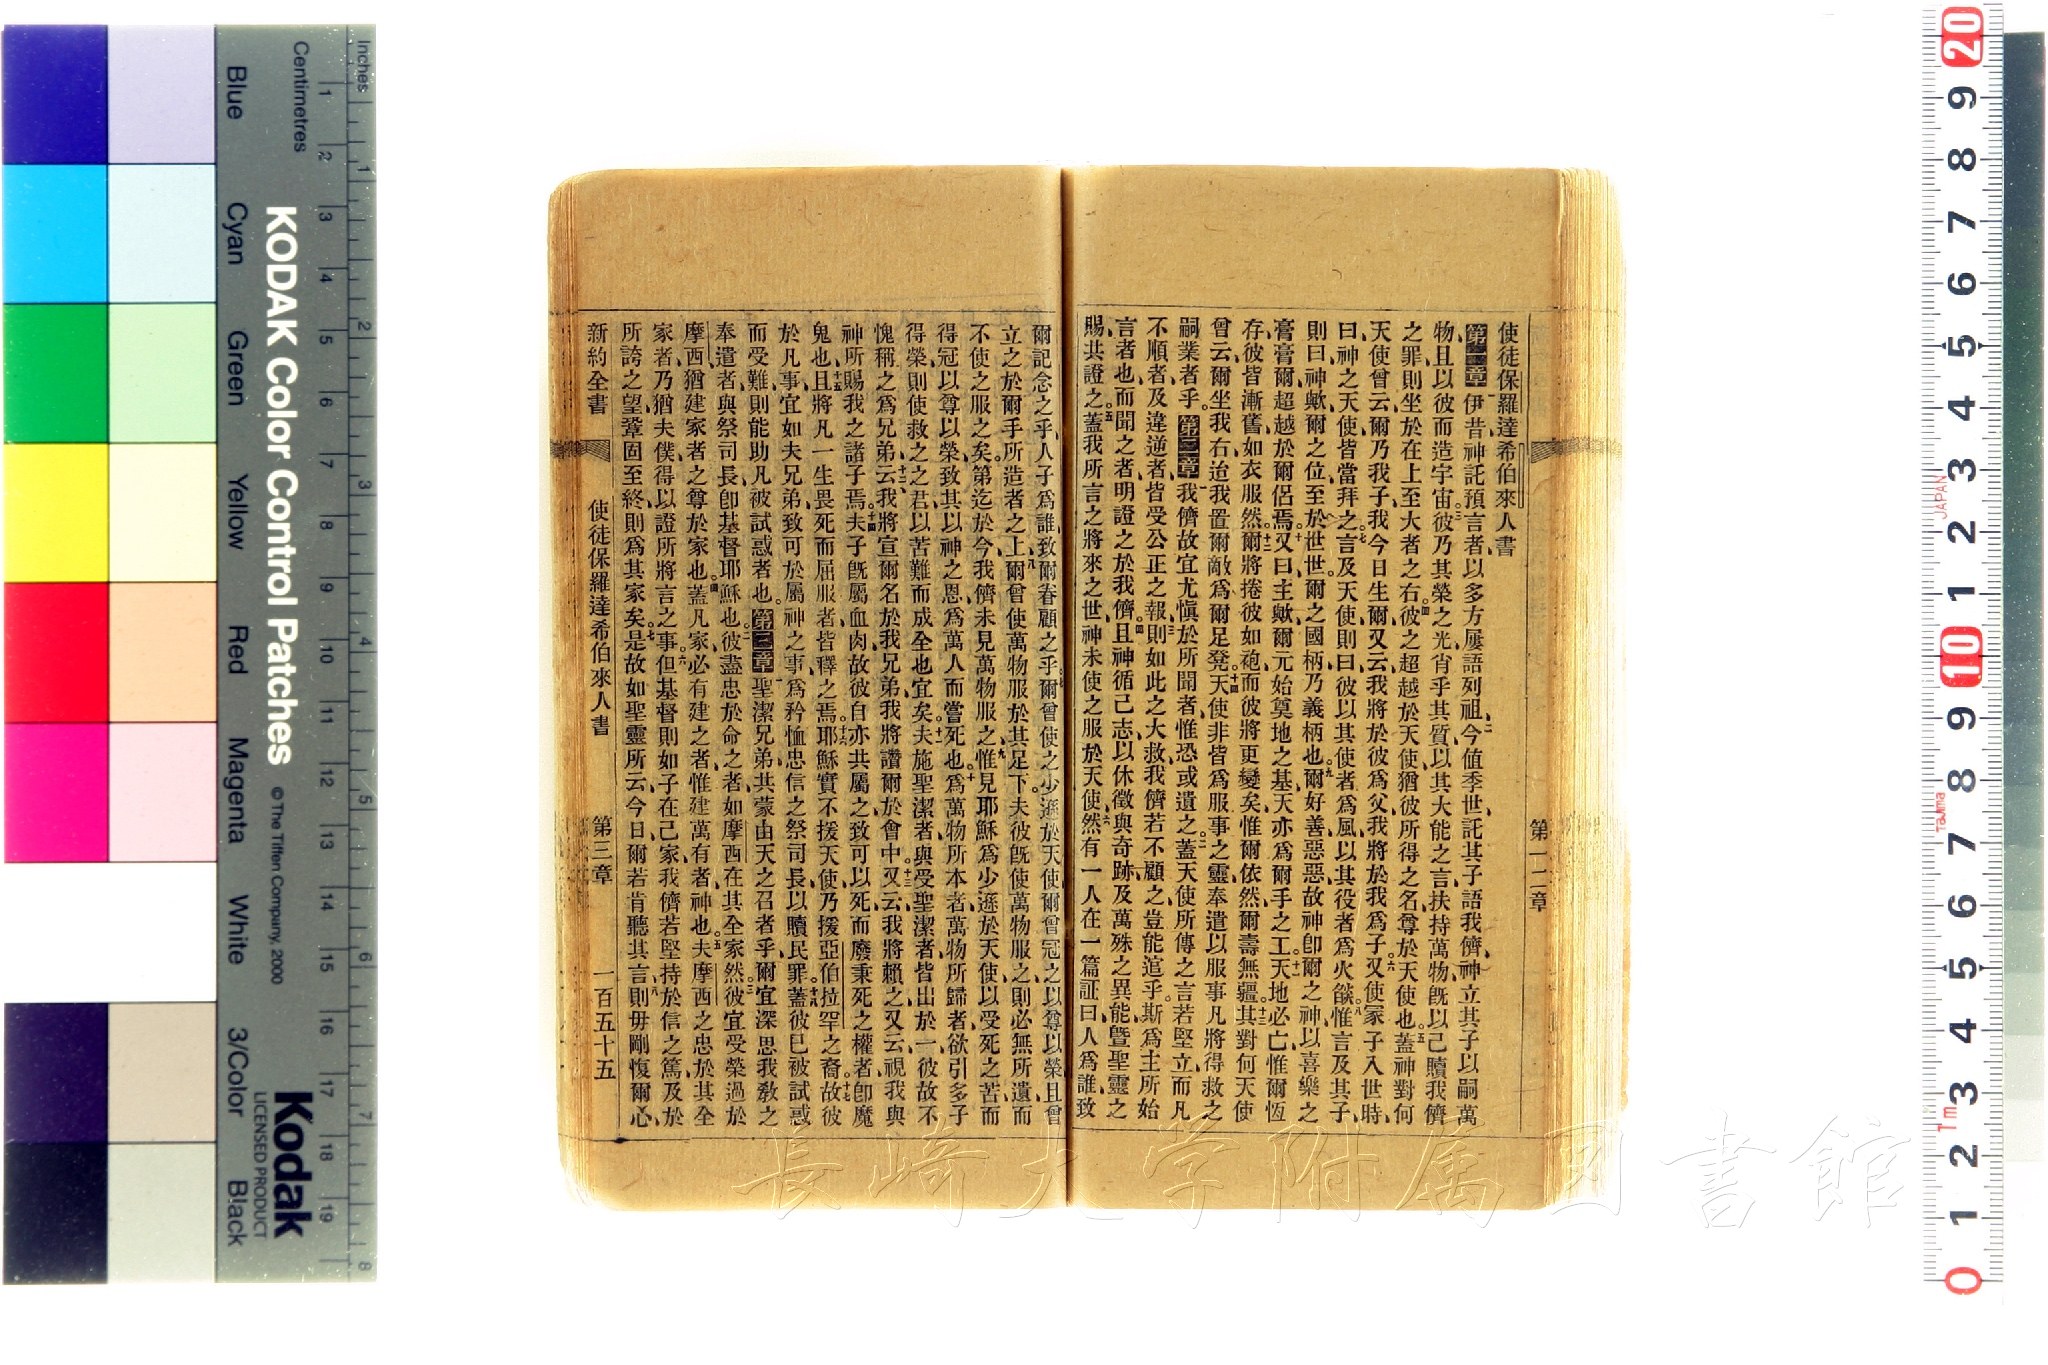 使徒保羅達希伯來人書
第一章伊昔神託預言者以多方屢語列祖今值季世託其子語我儕神立其子以嗣萬
物且以彼而造宇宙彼乃其榮之光肖乎其質以其大能之言扶持萬物旣以己贖我儕
之罪則坐於在上至大者之右彼之超越於天使猶彼所得之名尊於天使也蓋神對何
天使曾云爾乃我子我今日生爾又云我將於彼爲父我將於我爲子又使冢子入世時
曰神之天使皆當拜之言及天使則曰彼以其使者爲風以其役者爲火燄惟言及其子
則曰神歟爾之位至於世世爾之國柄乃義柄也爾好善惡惡故神卽爾之神以喜樂之
膏膏爾超越於爾侶焉又曰主歟爾元始奠地之基天亦爲爾手之工天地必亡惟爾恆
存彼皆漸舊如衣服然爾將捲彼如袍而彼將更變矣惟爾依然爾壽無疆其對何天使
曾云爾坐我右迨我置爾敵爲爾足凳天使非皆爲服事之靈奉遣以服事凡將得救之
嗣業者乎第二章我儕故宜尤愼於所聞者惟恐或遺之蓋天使所傳之言若堅立而凡
不順者及違逆者皆受公正之報則如此之大救我儕若不顧之豈能逭乎斯爲主所始
言者也而聞之者明證之於我儕且神循己志以休徵與奇跡及萬殊之異能曁聖靈之
賜共證之蓋我所言之將來之世神未使之服於天使然有一人在一篇証曰人爲誰致
第一二章
爾記念之乎人子爲誰致爾眷顧之乎爾曾使之少遜於天使爾曾冠之以尊以榮且曾
立之於爾手所造者之上爾曾使萬物服於其足下夫彼旣使萬物服之則必無所遺而
不使之服之矣第迄於今我儕未見萬物服之惟見耶穌爲少遜於天使以受死之苦而
得冠以尊以榮致其以神之恩爲萬人而嘗死也爲萬物所本者萬物所歸者欲引多子
得榮則使救之之君以苦難而成全也宜矣夫施聖潔者與受聖潔者皆出於一彼故不
愧稱之爲兄弟云我將宣爾名於我兄弟我將讚爾於會中又云我將賴之又云視我與
神所賜我之諸子焉夫子旣屬血肉故彼自亦共屬之致可以死而廢秉死之權者卽魔
鬼也且將凡一生畏死而屈服者皆釋之焉耶穌實不援天使乃援亞伯拉罕之裔故彼
於凡事宜如夫兄弟致可於屬神之事爲矜恤忠信之祭司長以贖民罪蓋彼已被試惑
而受難則能助凡被試惑者也第三章聖潔兄弟共蒙由天之召者乎爾宜深思我敎之
奉遣者與祭司長卽基督耶穌也彼盡忠於命之者如摩西在其全家然彼宜受榮過於
摩西猶建家者之尊於家也蓋凡家必有建之者惟建萬有者神也夫摩西之忠於其全
家者乃猶夫僕得以證所將言之事但基督則如子在己家我儕若堅持於信之篤及於
所誇之望鞏固至終則爲其家矣是故如聖靈所云今日爾若肯聽其言則毋剛愎爾心
新約全書　使徒保羅達希伯來人書　第三章　一百五十五
Inches
Centimetres
Blue Cyan Green Yellow Red Magenta White 3/Color Black
KODAK Color Control Patches © The Tiffen Company, 2000
Kodak
LICENSED PRODUCT
1 2 3 4 5 6 7 8 9 10 11 12 13 14 15 16 17 18 19
1 2 3 4 5 6 7 8
20 9 8 7 6 5 4 3 2 1 10 9 8 7 6 5 4 3 2 1 0
JAPAN
Tajima
Tm
長崎大学附属図書館